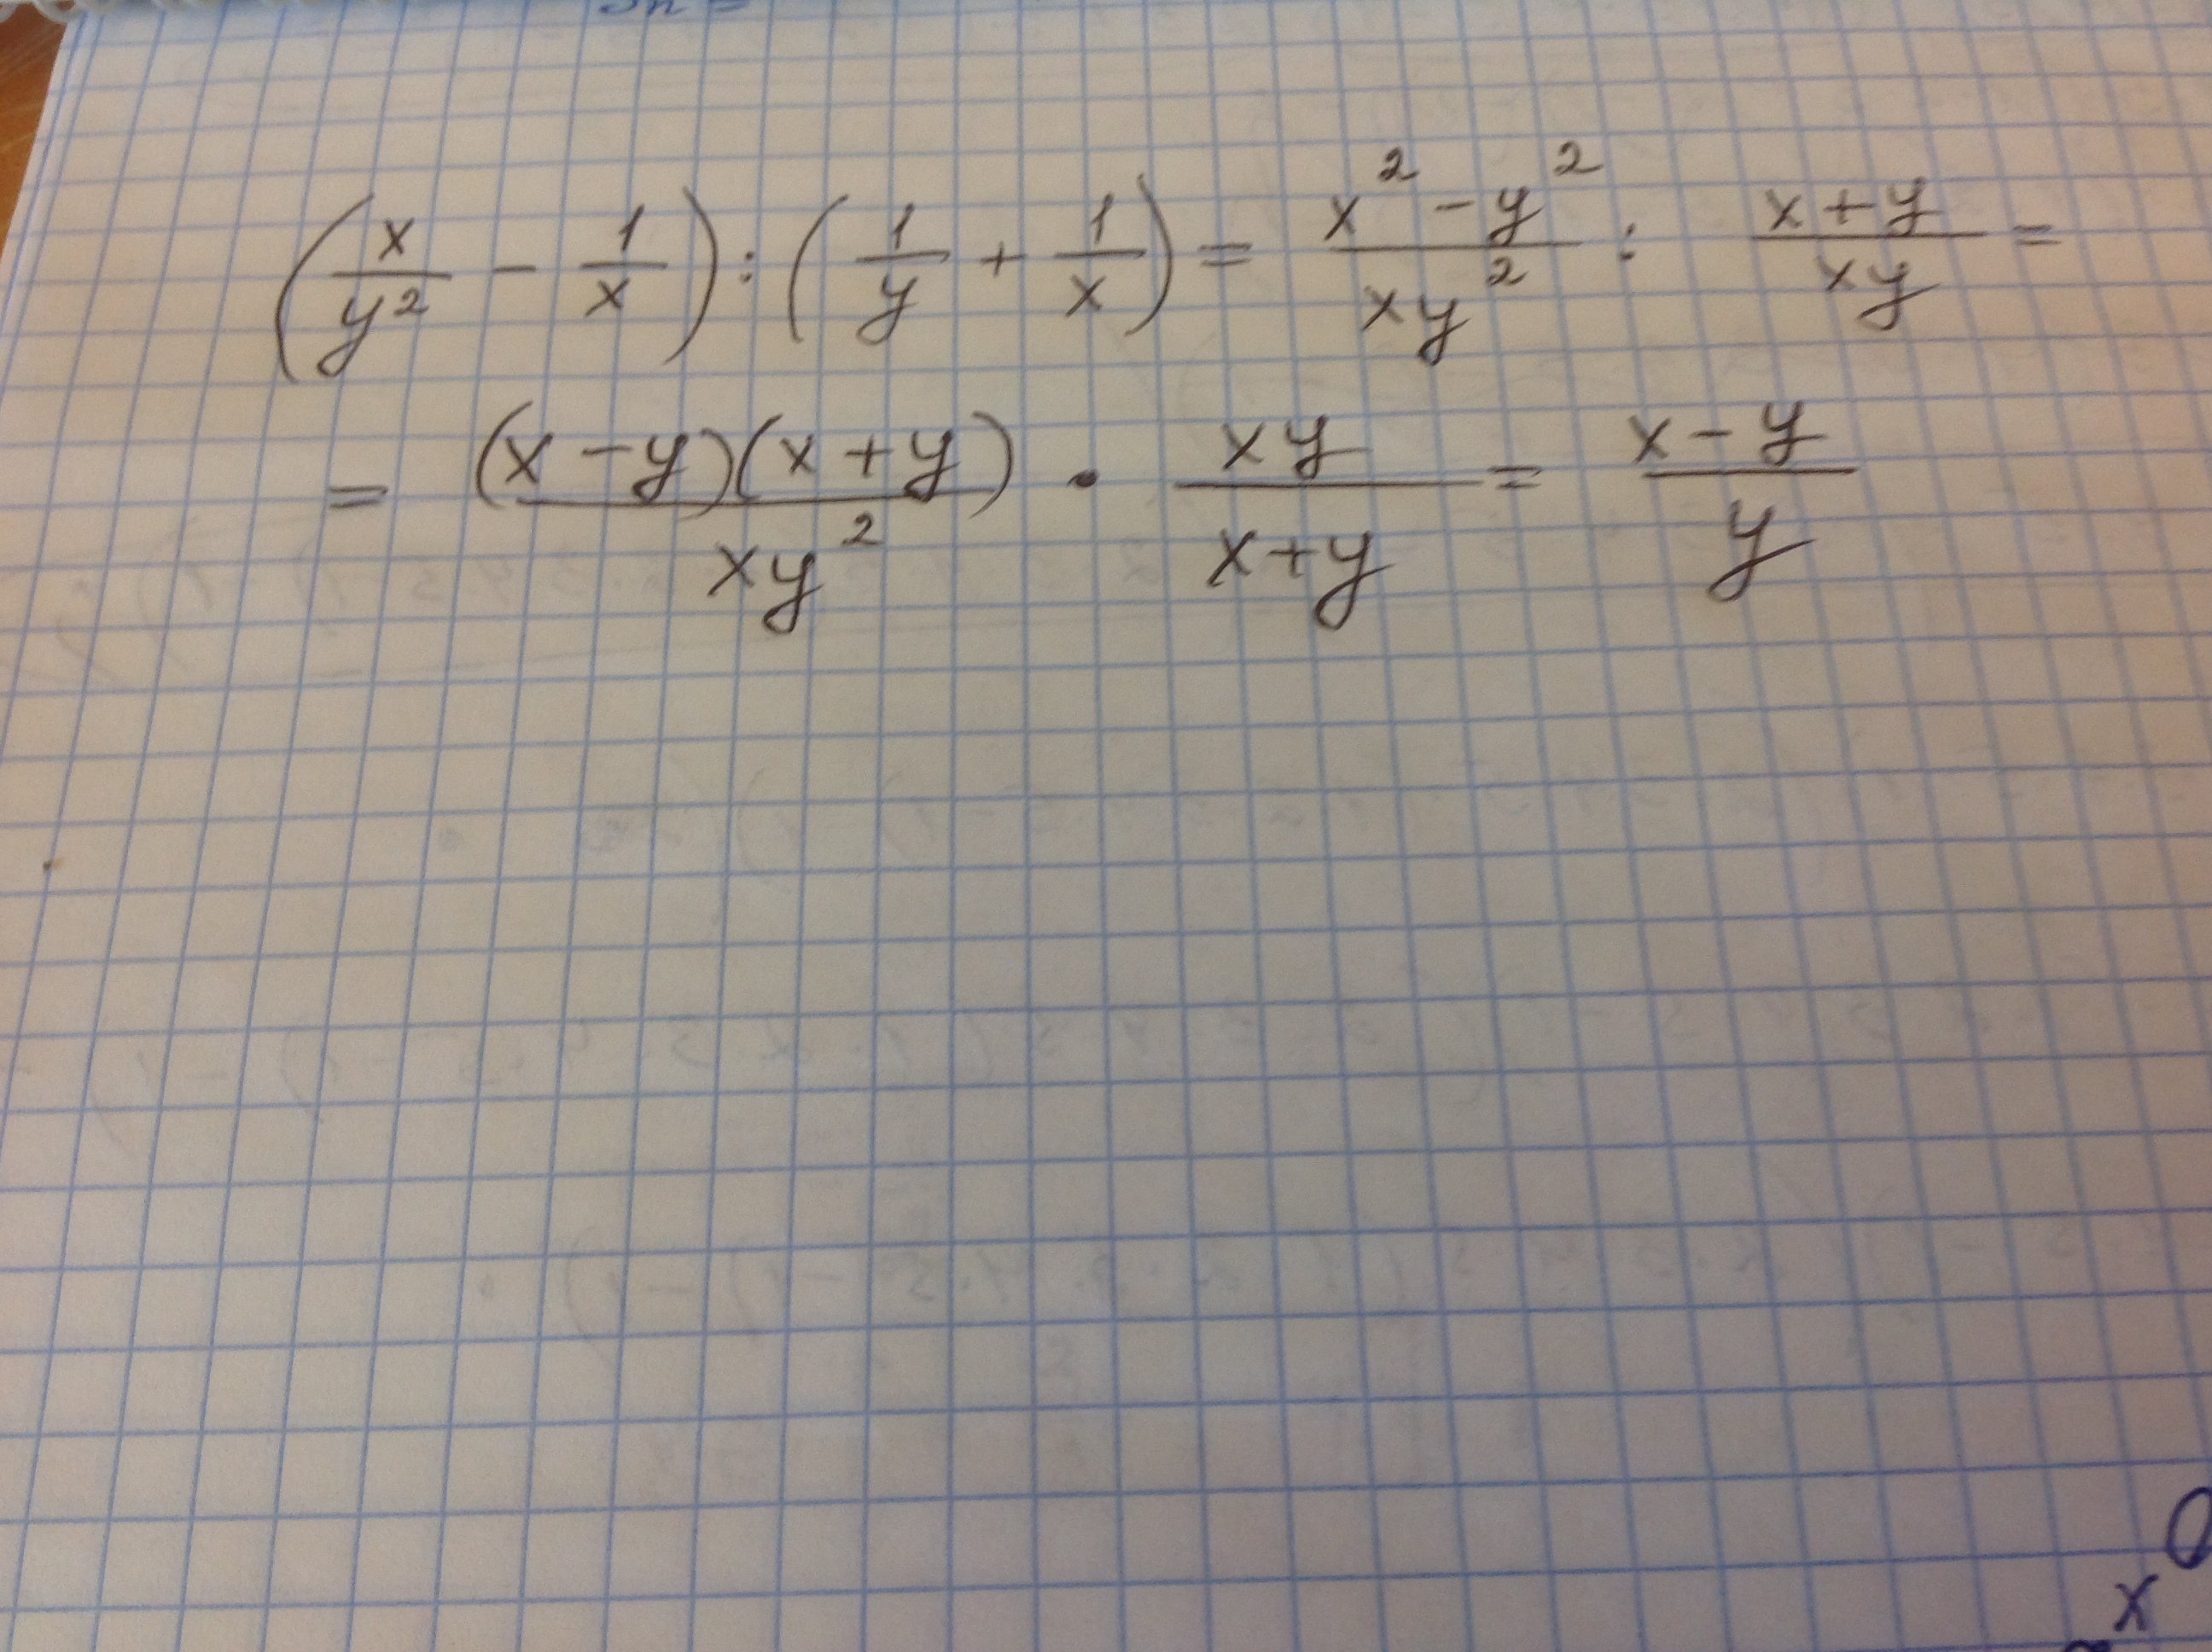 Sn =
(x/y² - 1/x) : (1/y + 1/x) = (x² - y²)/(xy²) : (x + y)/(xy) =
= ((x - y)(x + y))/(xy²) · (xy)/(x + y) = (x - y)/y
x